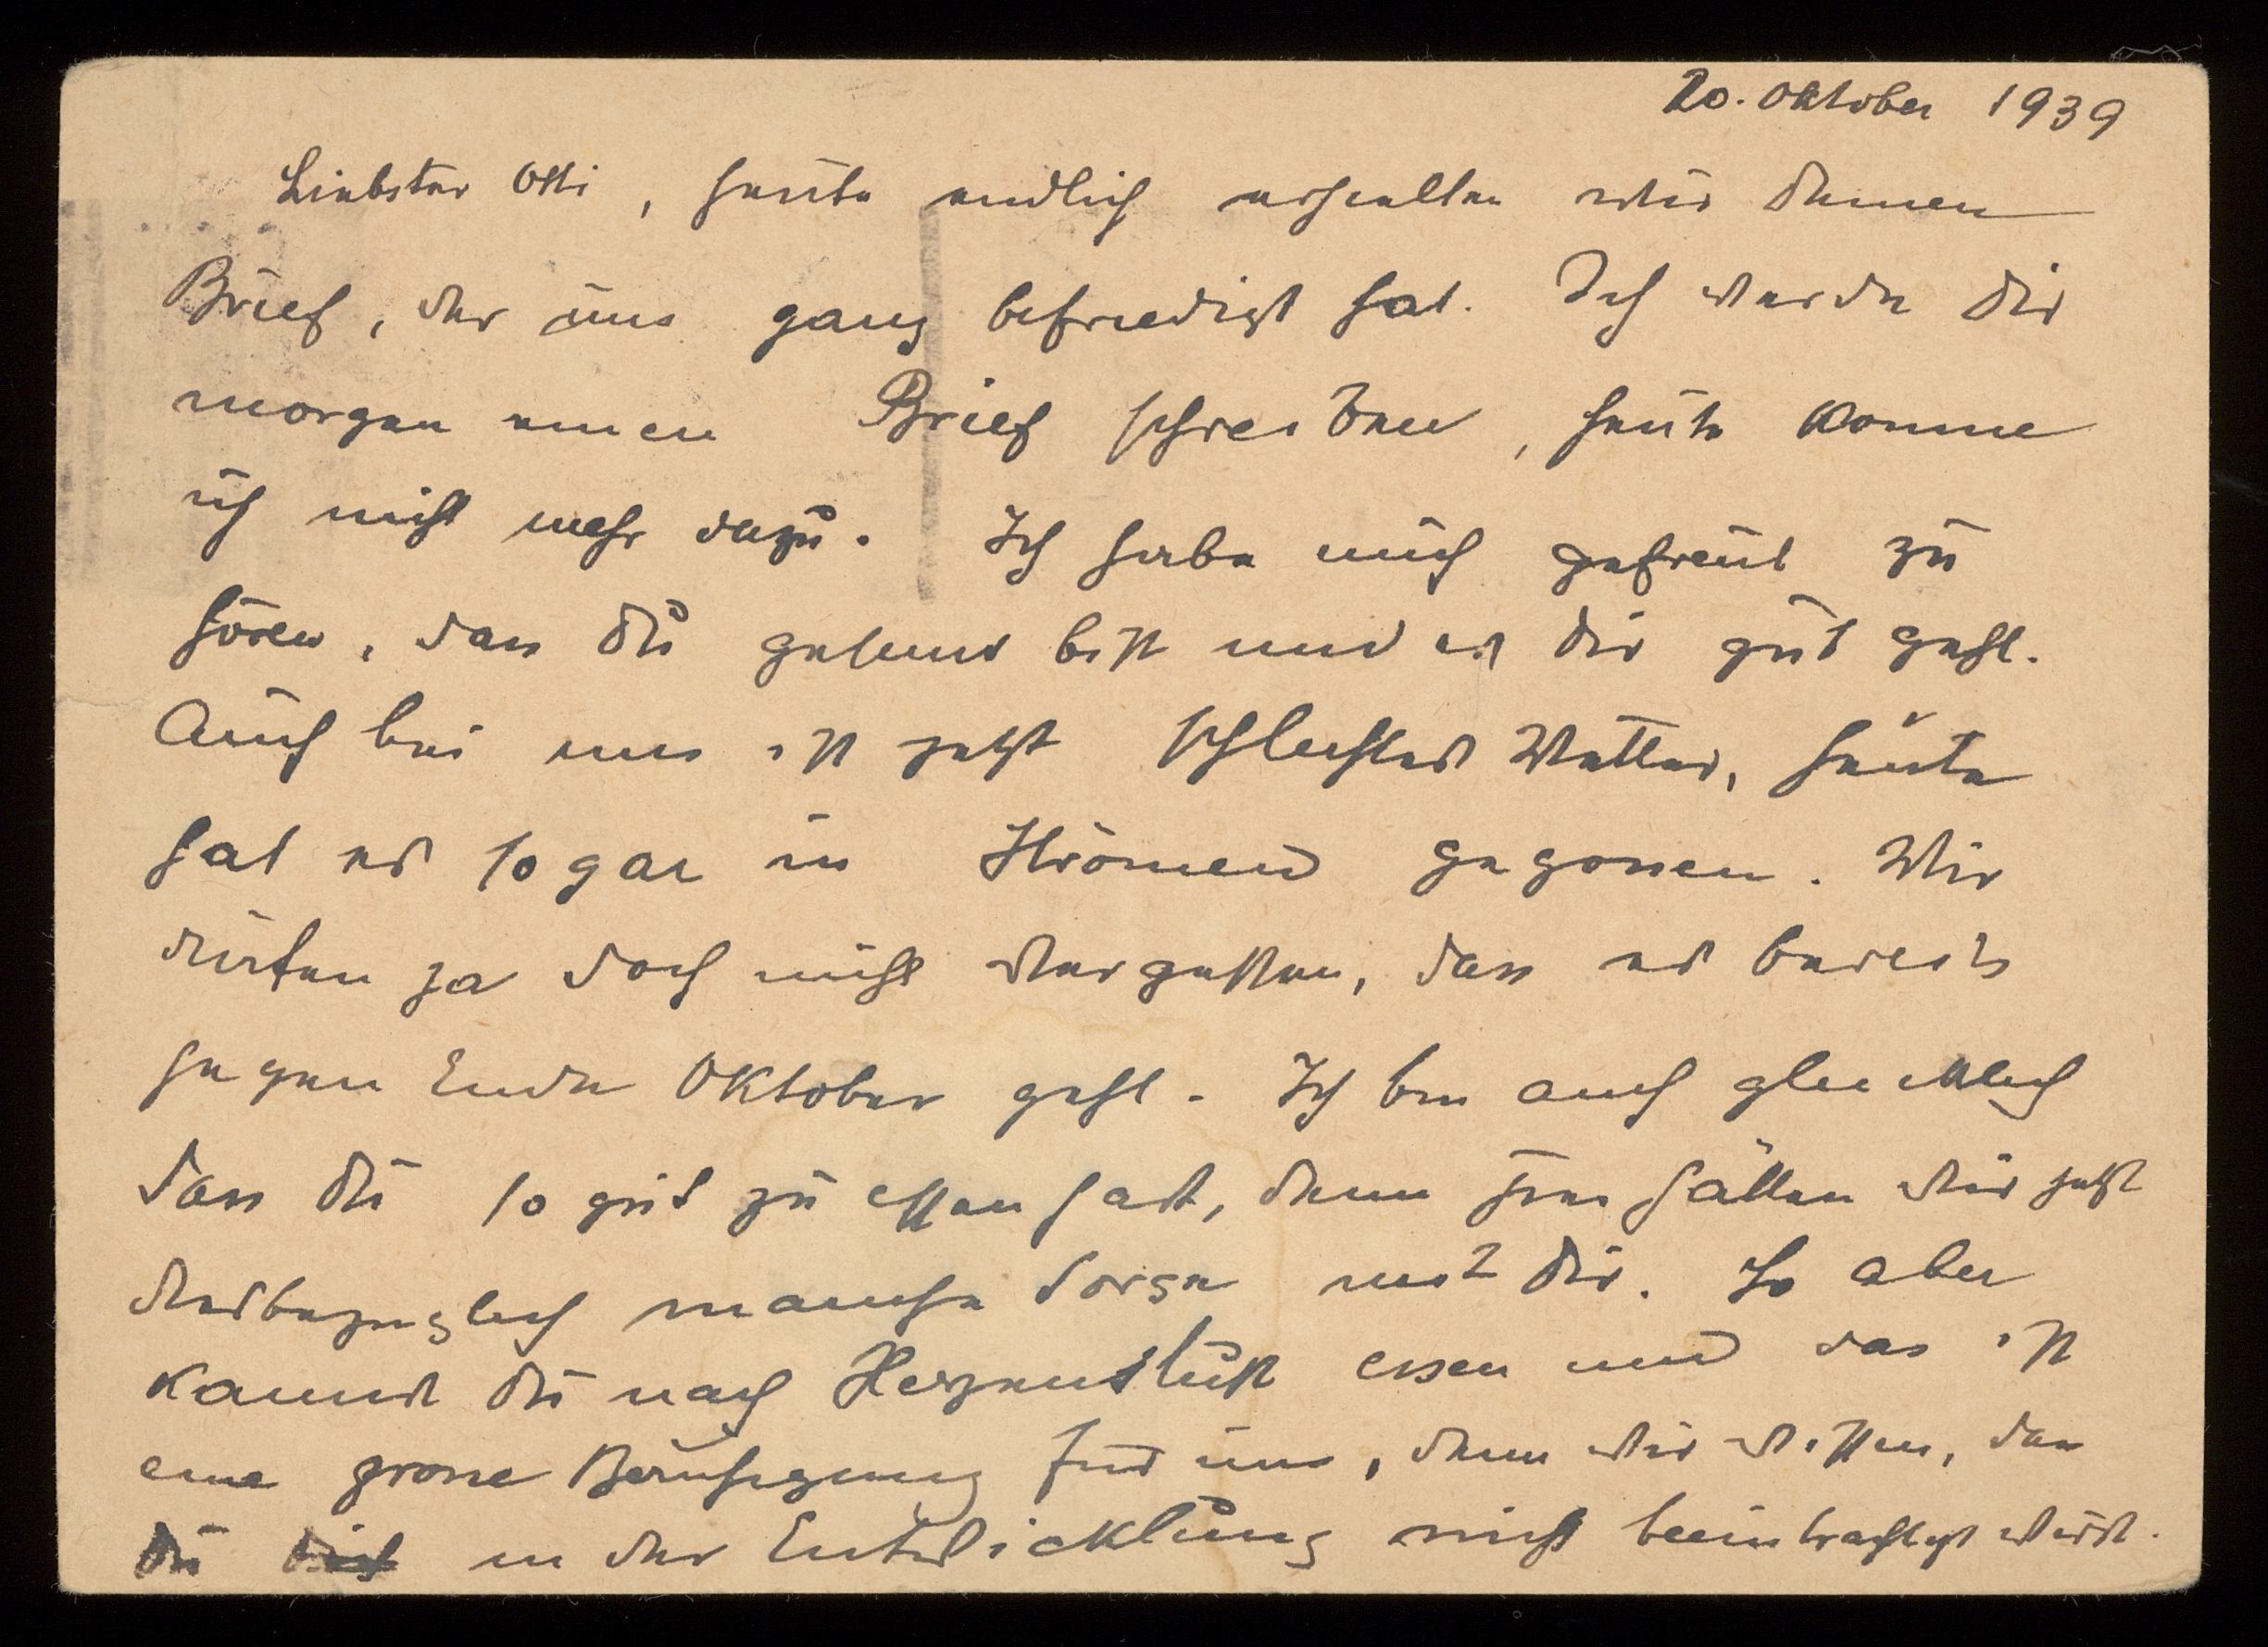 20. Oktober 1939
Liebster Otti, heute endlich erhielten wir Deinen
Brief, der uns ganz befriedigt hat. Ich werde Dir
morgen einen Brief schreiben, heute komme
ich nicht mehr dazu. Ich habe mich gefreut zu
hören, dass Du gesund bist und es Dir gut geht.
Auch bei uns ist jetzt schlechtes Wetter, heute
hat es sogar in Strömen gegossen. Wir
dürfen ja doch nicht vergessen, dass es bereits
gegen Ende Oktober geht. Ich bin auch glücklich
dass Du so gut zu essen hast, denn hier hätten wir jetzt
diesbezüglich manche Sorge mit Dir. So aber
kannst Du nach Herzenslust essen und das ist
eine grosse Beruhigung für uns, denn wir wissen, dass
Du in der Entwicklung nicht beeinträchtigt wirst.